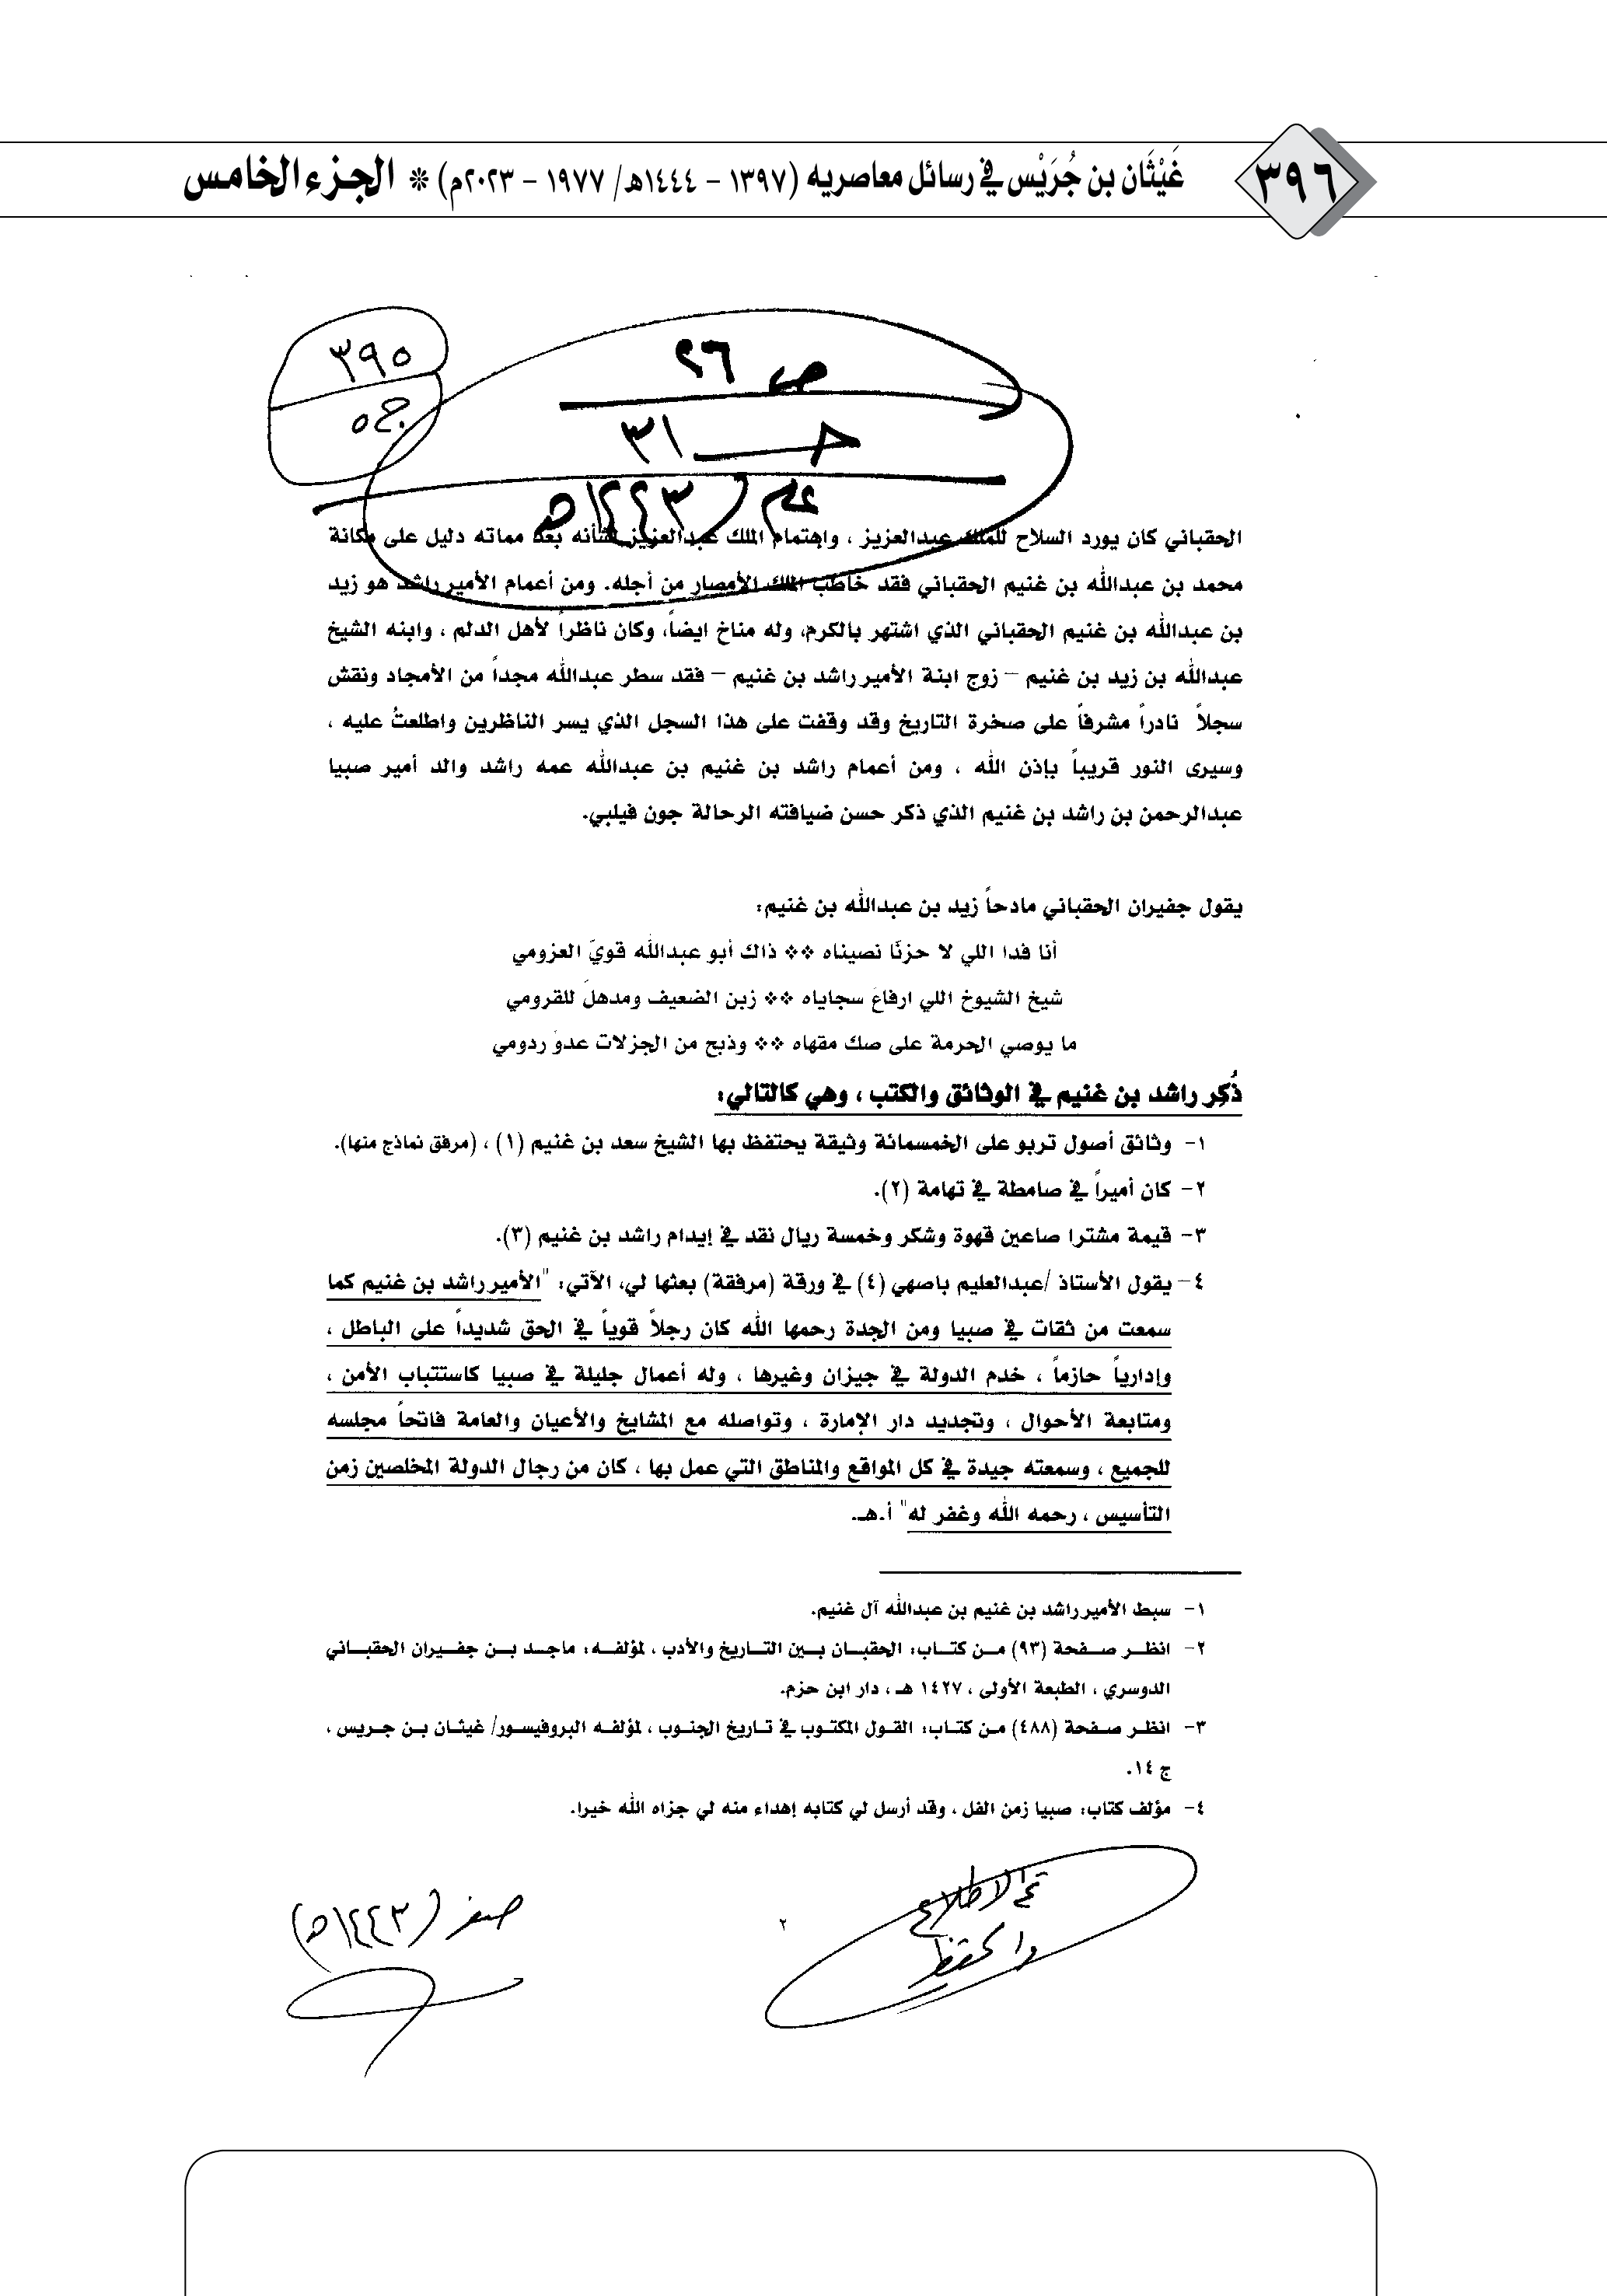 ٣٩٦
غَيْثَان بن جُرَيْس في رسائل معاصريه (١٣٩٧ - ١٤٤٤هـ/ ١٩٧٧ - ٢٠٢٣م) * الجزء الخامس
٣٩٥
ج٥
ص ٢٦
جـ ٣١
عام ١٤٤٣هـ
الحقباني كان يورد السلاح للملك عبدالعزيز ، واهتمام الملك عبدالعزيز بشأنه بعد مماته دليل على مكانة
محمد بن عبدالله بن غنيم الحقباني فقد خاطب الملك الأمصار من أجله. ومن أعمام الأمير راشد هو زيد
بن عبدالله بن غنيم الحقباني الذي اشتهر بالكرم، وله مناخ ايضاً، وكان ناظراً لأهل الدلم ، وابنه الشيخ
عبدالله بن زيد بن غنيم – زوج ابنة الأمير راشد بن غنيم – فقد سطر عبدالله مجداً من الأمجاد ونقش
سجلاً نادراً مشرفاً على صخرة التاريخ وقد وقفت على هذا السجل الذي يسر الناظرين واطلعتُ عليه ،
وسيرى النور قريباً بإذن الله ، ومن أعمام راشد بن غنيم بن عبدالله عمه راشد والد أمير صبيا
عبدالرحمن بن راشد بن غنيم الذي ذكر حسن ضيافته الرحالة جون فيلبي.
يقول جفيران الحقباني مادحاً زيد بن عبدالله بن غنيم:
أنا فدا اللي لا حزنًا نصيناه ❖❖ ذاك أبو عبدالله قويّ العزومي
شيخ الشيوخ اللي ارفاعَ سجاياه ❖❖ زبن الضعيف ومدهلَ للقرومي
ما يوصي الحرمة على صك مقهاه ❖❖ وذبح من الجزلات عدوَ ردومي
ذُكِر راشد بن غنيم في الوثائق والكتب ، وهي كالتالي:
١- وثائق أصول تربو على الخمسمائة وثيقة يحتفظ بها الشيخ سعد بن غنيم (١) ، (مرفق نماذج منها).
٢- كان أميراً في صامطة في تهامة (٢).
٣- قيمة مشترا صاعين قهوة وشكر وخمسة ريال نقد في إيدام راشد بن غنيم (٣).
٤- يقول الأستاذ /عبدالعليم باصهي (٤) في ورقة (مرفقة) بعثها لي، الآتي: "الأمير راشد بن غنيم كما
سمعت من ثقات في صبيا ومن الجدة رحمها الله كان رجلاً قوياً في الحق شديداً على الباطل ،
وإدارياً حازماً ، خدم الدولة في جيزان وغيرها ، وله أعمال جليلة في صبيا كاستتباب الأمن ،
ومتابعة الأحوال ، وتجديد دار الإمارة ، وتواصله مع المشايخ والأعيان والعامة فاتحاً مجلسه
للجميع ، وسمعته جيدة في كل المواقع والمناطق التي عمل بها ، كان من رجال الدولة المخلصين زمن
التأسيس ، رحمه الله وغفر له" أ.هـ.
١- سبط الأمير راشد بن غنيم بن عبدالله آل غنيم.
٢- انظر صفحة (٩٣) من كتاب: الحقبان بين التاريخ والأدب ، لمؤلفه: ماجد بن جفيران الحقباني
الدوسري ، الطبعة الأولى ، ١٤٢٧ هـ ، دار ابن حزم.
٣- انظر صفحة (٤٨٨) من كتاب: القول المكتوب في تاريخ الجنوب ، لمؤلفه البروفيسور/ غيثان بن جريس ،
ج ١٤.
٤- مؤلف كتاب: صبيا زمن الفل ، وقد أرسل لي كتابه إهداء منه لي جزاه الله خيرا.
تم الاطلاع
والحفظ
٢
صفر (١٤٤٣هـ)